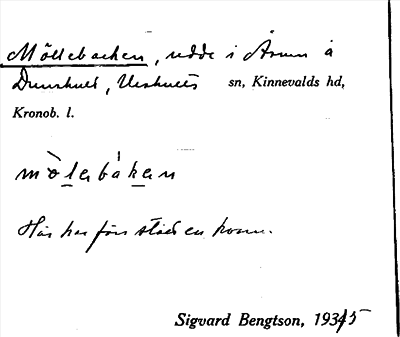 Möllebacken, udde i Åsnen å
Dunshult, Urshults sn, Kinnevalds hd,
Kronob. l.
mòlabáken
Här har förr stått en kvarn.
Sigvard Bengtson, 1935